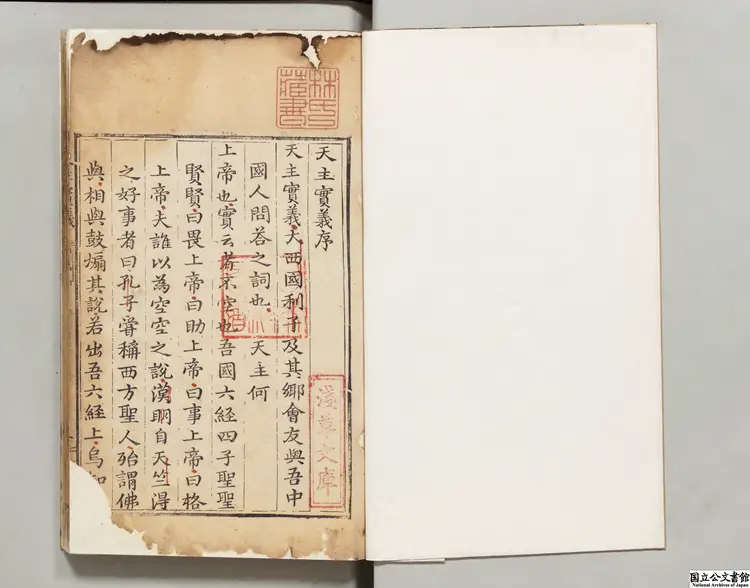 天主實義序
天主實義大西國利子及其鄉會友與吾中
國人問答之詞也天主何
上帝也實云者不空也吾國六經四子聖聖
賢賢曰畏上帝曰助上帝曰事上帝曰格
上帝夫誰以為空空之說漢明自天竺得
之好事者曰孔子嘗稱西方聖人殆謂佛
與相與鼓煽其說若出吾六經上烏
林氏藏書
淺草文庫
国立公文書館
National Archives of Japan